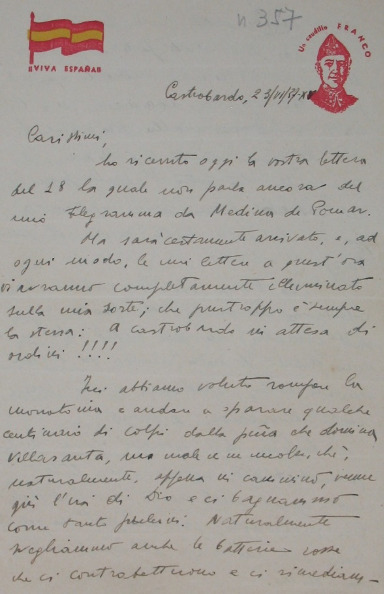 n 357
VIVA ESPAÑA
Un caudillo FRANCO
Castrobarto, 23/VI/37-XV
Carissimi,
ho ricevuto oggi la vostra lettera
del 18 la quale non parla ancora del
mio telegramma da Medina de Pomar.
Ma sarà certamente arrivato, e, ad
ogni modo, le mie lettere a quest'ora
vi avranno completamente illuminato
sulla mia sorte; che purtroppo è sempre
la stessa: A Castrobarto in attesa di
ordini !!!!
Ieri abbiamo voluto rompere la
monotonia e andare a sparare qualche
centinaio di colpi dalla peña che domina
Villasanta, ma male ce ne incolse, chè,
naturalmente, appena in cammino, venne
giù l'ira di Dio e ci bagnammo
come tanti pulcini. Naturalmente
svegliammo anche le batterie rosse
che ci contrabatterono e ci rimediam-